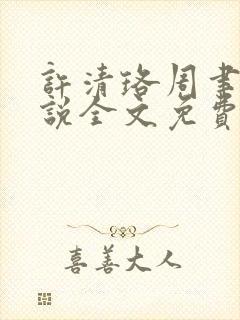 許清珞周聿
說全文免費
喜善大人